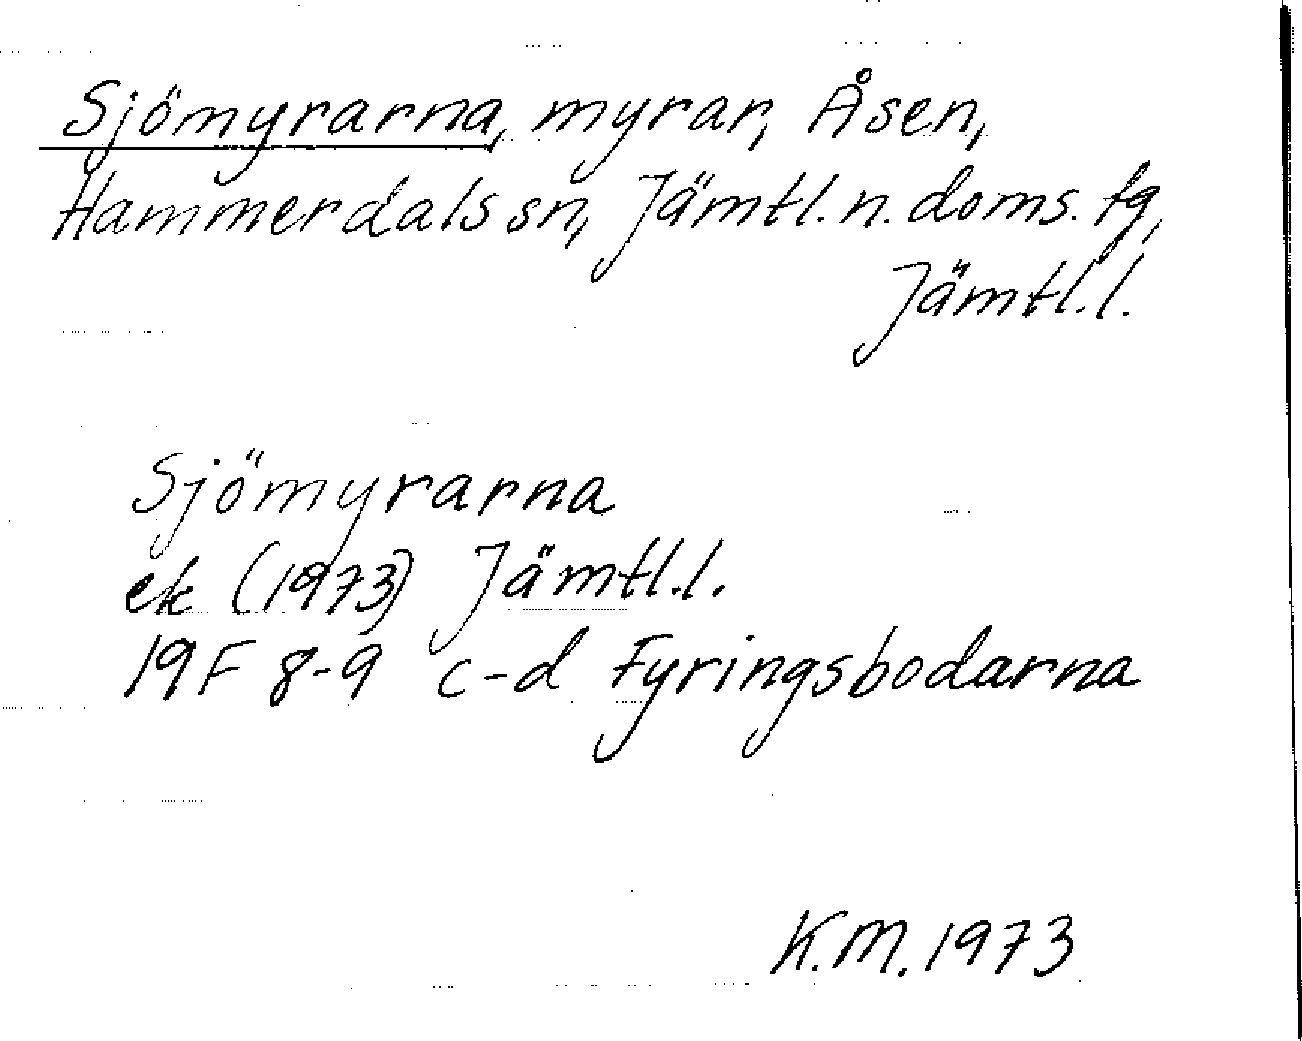 Sjömyrarna, myrar, Åsen,
Hammerdals sn, Jämtl. n. doms. fg,
Jämtl. l.
Sjömyrarna
ek (1973) Jämtl. l.
19F 8-9 c-d Fyringsbodarna
K.M. 1973